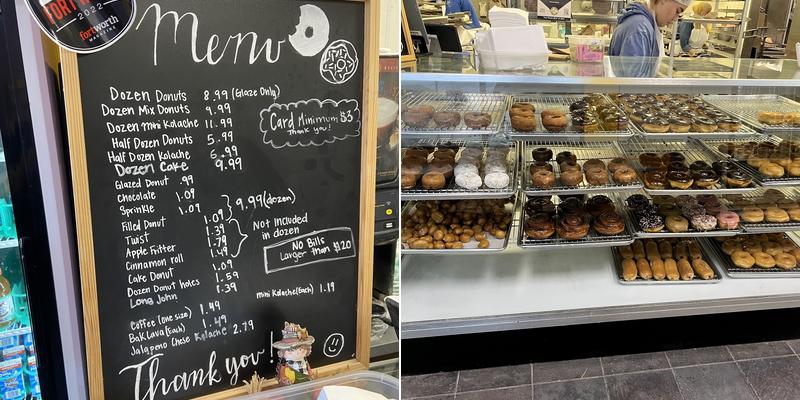 FORT
2022
fortworth
MAGAZINE
Menu
Dozen Donuts 8.99 (Glaze Only)
Dozen Mix Donuts 9.99
Dozen mini Kolache 11.99
Half Dozen Donuts 5.99
Half Dozen Kolache 6.99
Dozen Cake 9.99
Card Minimum $3
Thank you!
Glazed Donut .99
Chocolate 1.09
Sprinkle 1.09
9.99 (dozen)
Filled Donut 1.09
Twist 1.39
Apple Fritter 1.79
Cinnamon roll 1.49
Not Included
in dozen
Cake Donut 1.09
Dozen Donut holes 1.59
Long John 1.39
No Bills
Larger than $20
mini Kolache (Each) 1.19
Coffee (one size) 1.49
Baklava (Each) 1.49
Jalapeno Chese Kolache 2.79
Thank you!